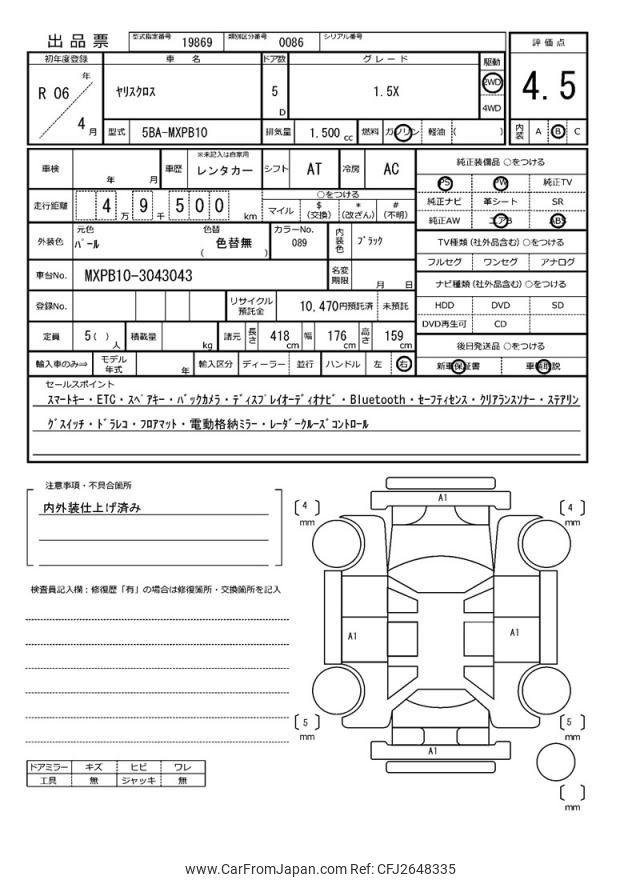 出品票 型式指定番号 19869 類別区分番号 0086 シリアル番号
評価点
4.5
内装 A B C
初年度登録 車名 ドア数 グレード 駆動
R 06 年 4 月 ヤリスクロス 5 D 1.5X 2WD 4WD
型式 5BA-MXPB10 排気量 1.500 cc 燃料 ガソリン 軽油 ( )
車検 年 月 車歴 ※未記入は自家用 レンタカー シフト AT 冷房 AC
走行距離 4 万 9 千 5 0 0 km
○をつける
マイル $ (交換) * (改ざん) # (不明)
外装色 元色 パール 色替 色替無 ( ) カラーNo. 089 内装色 ブラック
車台No. MXPB10-3043043 名変期限 月 日
登録No. リサイクル預託金 10.470円預託済 未預託
定員 5( ) 人 積載量 kg 諸元 長さ 418 cm 幅 176 cm 高さ 159 cm
輸入車のみ⇒ モデル年式 年 輸入区分 ディーラー 並行 ハンドル 左 右
純正装備品 ○をつける
PS PW 純正TV
純正ナビ 革シート SR
純正AW エアB ABS
TV種類(社外品含む)○をつける
フルセグ ワンセグ アナログ
ナビ種類(社外品含む)○をつける
HDD DVD SD
DVD再生可 CD
後日発送品 ○をつける
新車保証書 車輌取説
セールスポイント
スマートキー・ETC・スペアキー・バックカメラ・ディスプレイオーディオナビ・Bluetooth・セーフティセンス・クリアランスソナー・ステアリン
グスイッチ・ドラレコ・フロアマット・電動格納ミラー・レーダークルーズコントロール
注意事項・不具合箇所
内外装仕上げ済み
検査員記入欄:修復歴「有」の場合は修復箇所・交換箇所を記入
ドアミラー キズ ヒビ ワレ
工具 無 ジャッキ 無
A1
4 mm
4 mm
A1
A1
5 mm
5 mm
A1
mm
www.CarFromJapan.com Ref: CFJ2648335